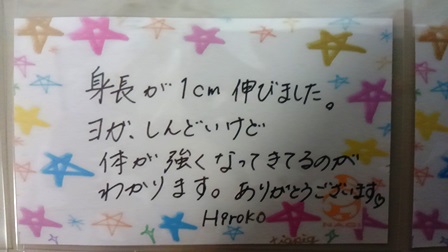 身長が1cm 伸びました。
ヨガ、しんどいけど
体が強くなってきてるのが
わかります。ありがとうございます♡
Hiroko